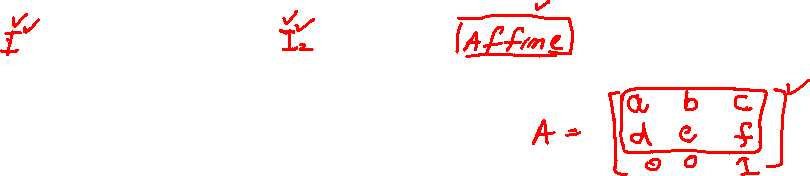 I I₂ Affine
A = [a b c
d e f
0 0 1]